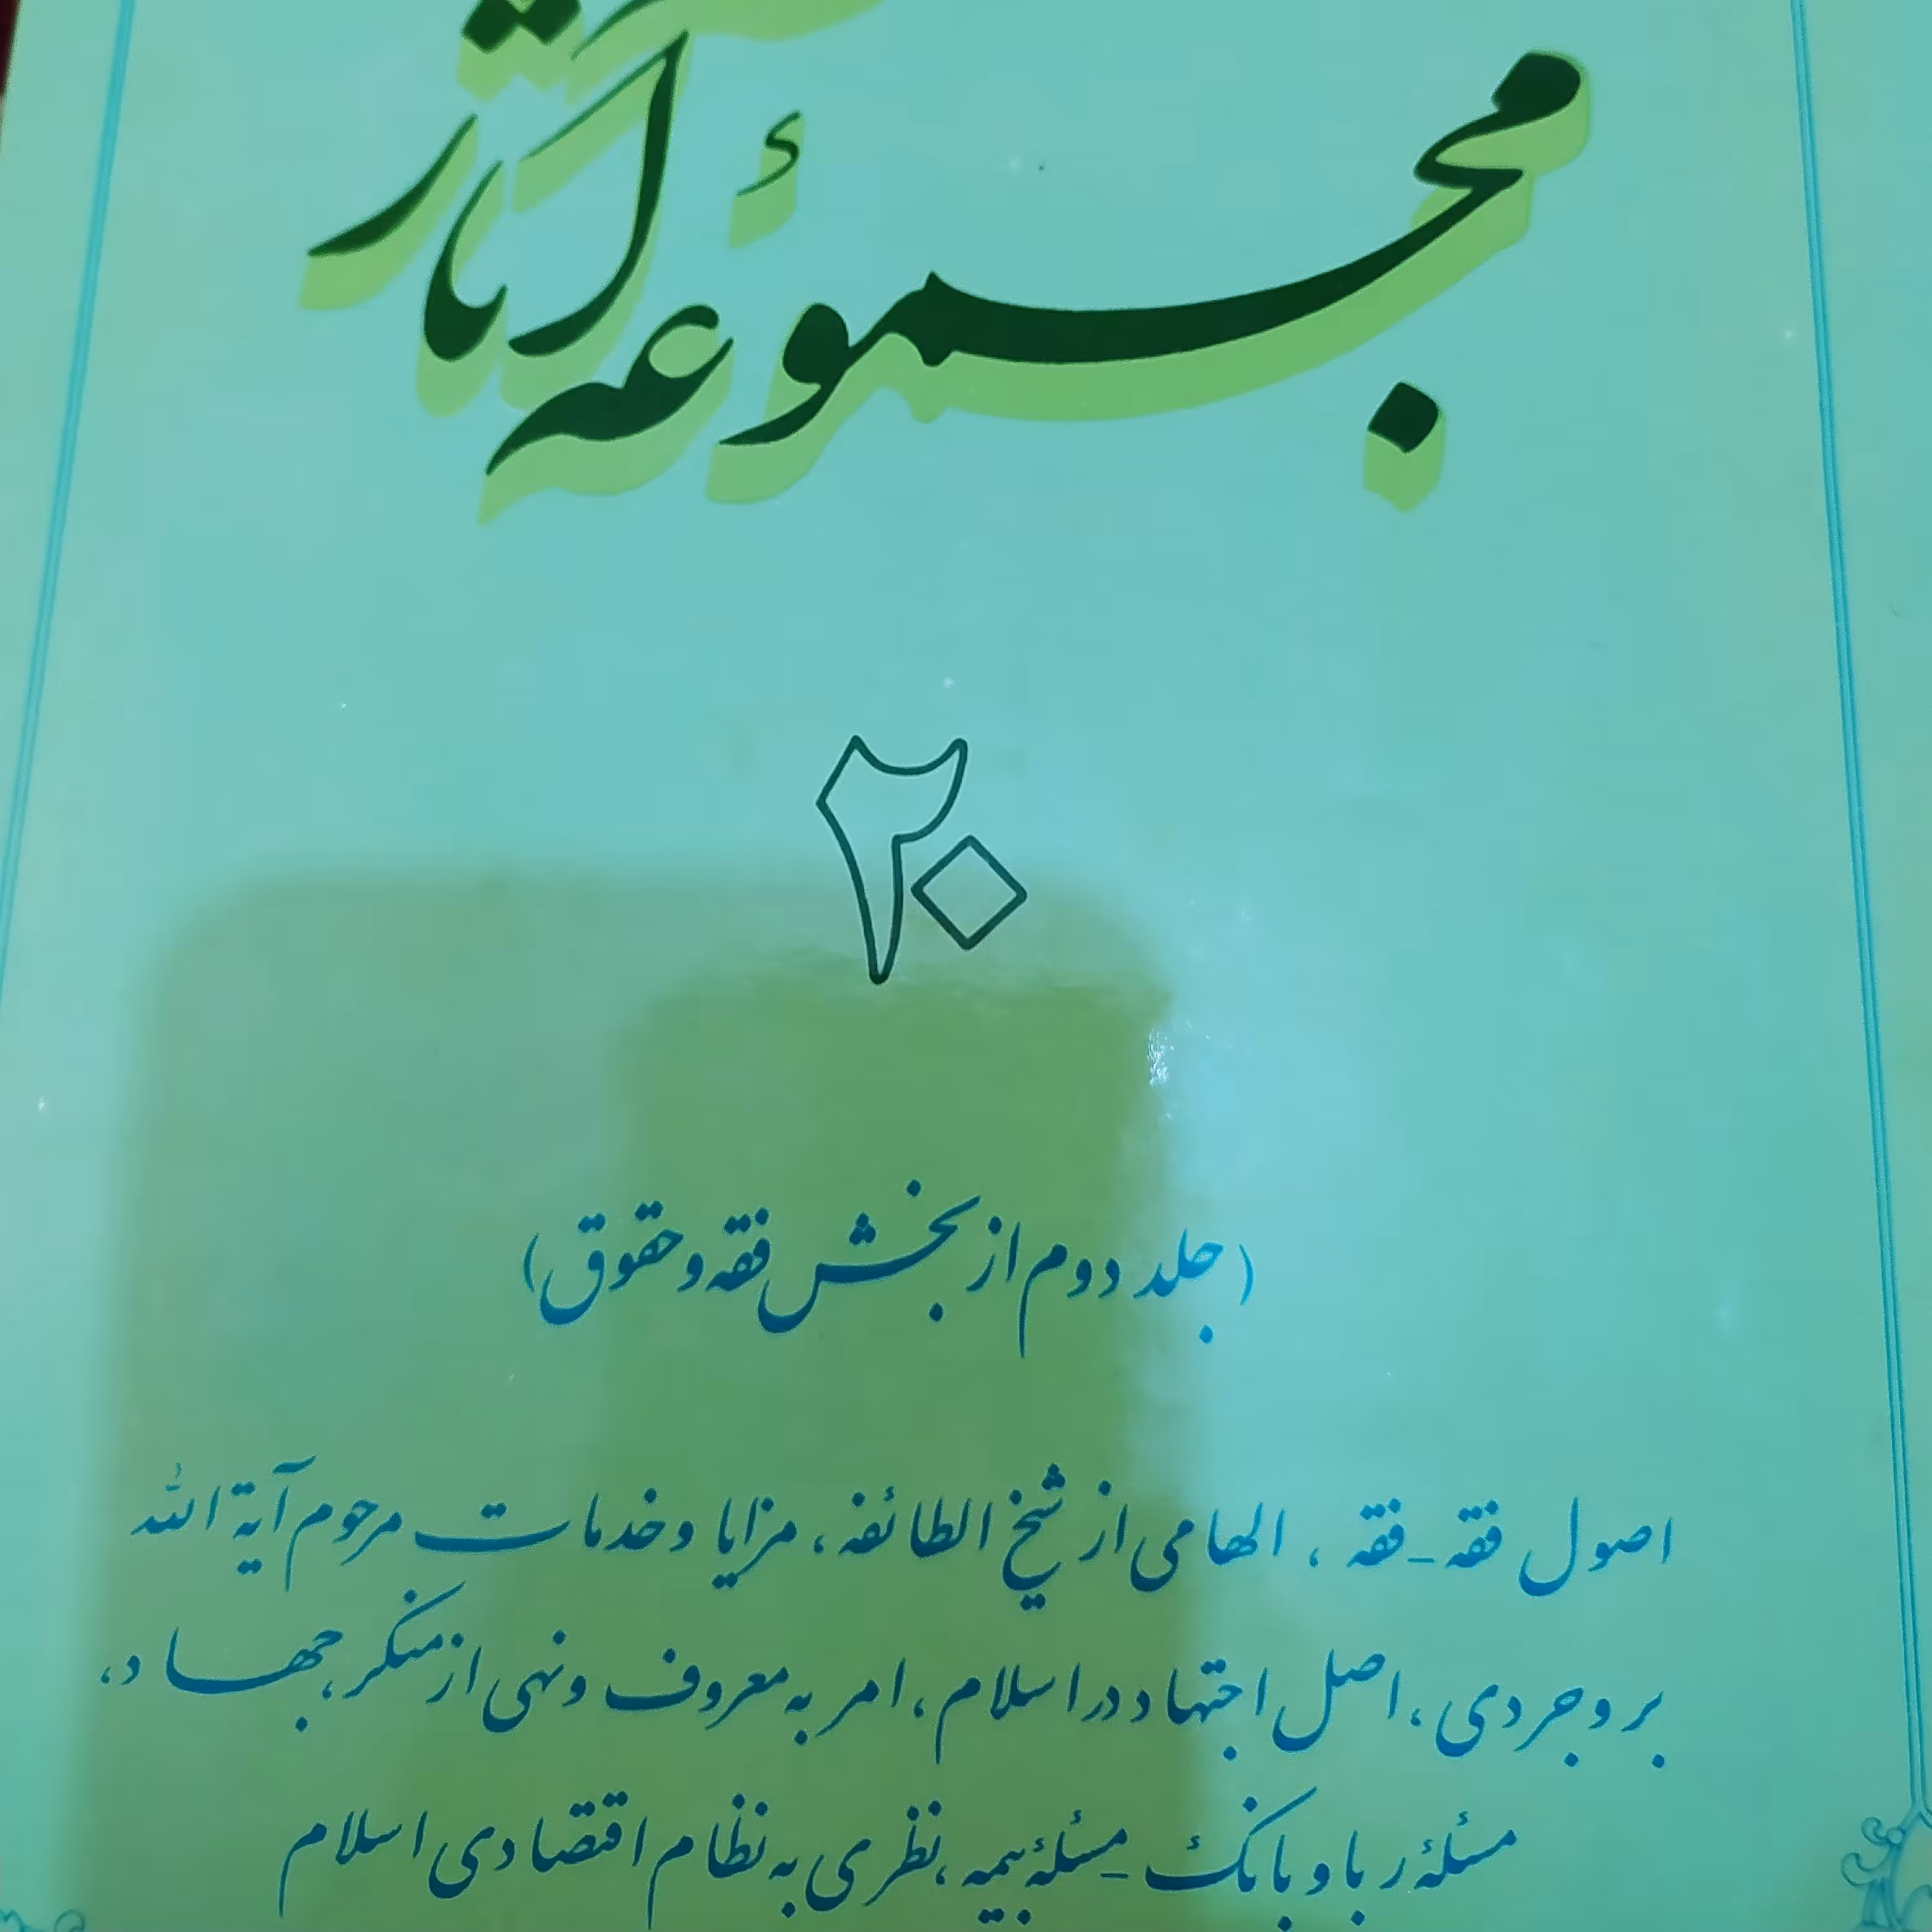 مجموعهٔ آثار
۲۰
(جلد دوم از بخش فقه و حقوق)
اصول فقه ـ فقه، الهامی از شیخ الطائفه، مزایا و خدمات مرحوم آیة الله
بروجردی، اصل اجتهاد در اسلام، امر به معروف و نهی از منکر، جهاد،
مسئلهٔ ربا و بانک ـ مسئلهٔ بیمه، نظری به نظام اقتصادی اسلام